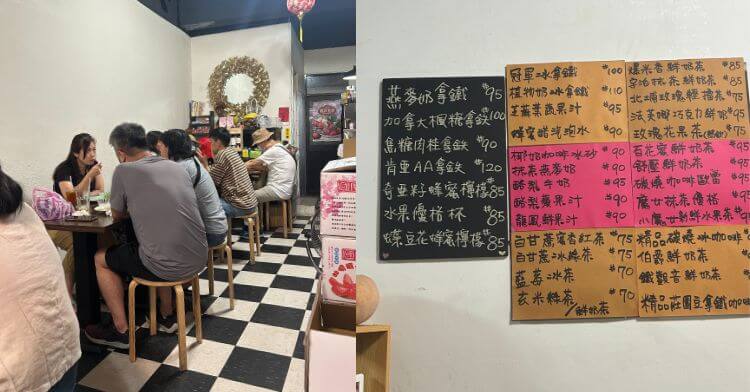 燕麥奶拿鐵 $95
加拿大楓糖拿鐵 $100
黑糖肉桂拿鐵 $90
肯亞AA拿鐵 $120
奇亞籽蜂蜜檸檬 $85
水果優格杯 $85
蝶豆花蜂蜜檸檬 $85
冠軍冰拿鐵 $100
植物奶冰拿鐵 $110
芝麻葉蔬果汁 $95
蜂蜜醋汽泡水 $90
椰奶咖啡冰砂 $90
抹茶燕麥奶 $90
酪梨牛奶 $95
酪梨蘋果汁 $90
龍鳳鮮果汁 $90
白甘蔗蜜香紅茶 $75
白甘蔗冰綠茶 $75
藍莓冰茶 $70
玄米綠茶 $70
/鮮奶茶
爆米香鮮奶茶 $85
宇治抹茶鮮奶茶 $85
北埔玫瑰輕擂茶 $75
法芙娜巧克力鮮奶 $95
玫瑰花果茶(熱飲) $75
百花蜜鮮奶茶 $85
舒壓鮮奶茶
碳燒咖啡歐蕾
魔女抹茶優格
小魔女新鮮水果茶
精品碳燒冰咖啡
伯爵鮮奶茶
鐵觀音鮮奶茶
精品莊園豆拿鐵/咖啡